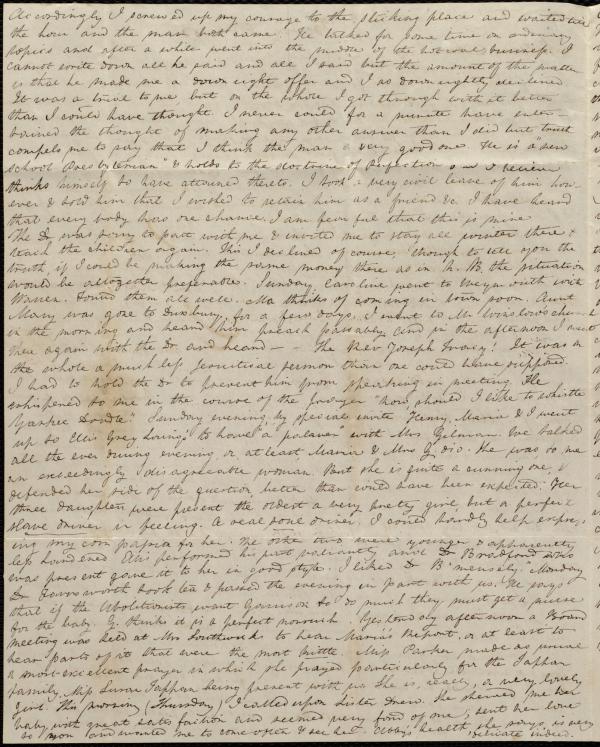 Accordingly I screwed up my courage to the sticking place and waited till
the hour and the man both came. He talked for some time on ordinary
topics and after a while went into the middle of the business. I
cannot write down all he said and all I said but the amount of the matter
is that he made me a downright offer and I as downrightly declined
It was a trial to me, but on the whole I got through with it better
than I could have thought. I never could for a minute have enter-
tained the thought of making any other answer than I did but truth
compels me to say that I think the man a very good one. He is a new
school Presbyterian" & holds to the doctrine of Perfection and I believe
thinks himself to have attained thereto. I took a very civil leave of him how-
ever & told him that I wished to retain him as a friend &c. I have heard
that every body has one chance. I am fearful that this is mine
The Dr was sorry to part with me & invited me to stay all winter there &
teach the children again. This I declined of course, though to tell you the
truth, if I could be making the same money there as in N. B. the situation
would be altogether preferable. Sunday, Caroline went to Weymouth with
Warren. Found them all well. Ma thinks of coming in town soon. Aunt
Mary was gone to Duxbury for a few days. I went to Mr Winslows church
in the morning and heard him preach passably and in the afternoon I went
there again with the Dr and heard — — The Rev Joseph Tracy! It was on
the whole a much less Jesuitical sermon than one could have supposed.
I had to hold the Dr to prevent him from speaking in meeting. He
whispered to me in the course of the prayer "how should I like to whistle
Yankee Doodle" Sunday evening by special invite Henry, Maria & I went
up to Ellis Grey Loring's to have "a palaver" with Mrs Gilman. We talked
all the ever during evening, or at least Maria & Mrs G. did. She was to me
an exceedingly disagreeable woman. But she is quite a cunning one, &
defended her side of the question better than could have been expected. Her
three daughters were present the oldest a very pretty girl but a perfect
slave driver in feeling. A real soul driver. I could hardly help express-
ing my for her. The other two were younger & apparently
less hardened. Ellis performed his part valiantly and Dr Bradford who
was present gave it to her in good style. I liked Dr B 'mensely." Monday
Dr Farnsworth took tea & passed the evening in part with us. He says
that if the Abolitionists want Garrison to do much they must get a nurse
for the baby. G. thinks it is a perfect nonsuch. Yesterday afternoon a Board
meeting was held at Mrs Southwick to hear Maria's Report, or at least to
hear parts of it that were the most Miss Parker made as usual
a most excellent prayer in which she prayed particularly for the Tappan
family, Miss Susan Tappan being present with us. She is, really, a very lovely
girl. This morning (Thursday) I called upon Sister Drew. She showed me her
baby with great satisfaction and seemed very fond of me, sent her love
to you and wanted me to come often & see her. Abby's health, she says, is very
delicate indeed.